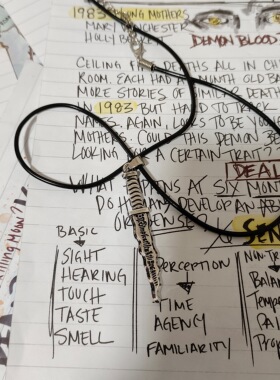 1983 YOUNG MOTHERS
MARY WINCHESTER
HOLLY BECK
DEMON BLOOD
CEILING FIRE DEATHS ALL IN CH
ROOM. EACH HAD A MONTH OLD BA
MORE STORIES OF SIMILAR DEATH
IN 1983 BUT HARD TO TRACK
NAMES. AGAIN, LOOKS TO BE YOU
MOTHERS. COULD THIS DEMON BE
LOOKING FOR A CERTAIN TRAIT
DEAL
WHAT HAPPENS AT SIX MON
DO HUMANS DEVELOP AN AB
OR SENSE?
SEN
BASIC
SIGHT
HEARING
TOUCH
TASTE
SMELL
PERCEPTION
TIME
AGENCY
FAMILIARITY
NON-TR
BALA
TEMP
PAI
PROP